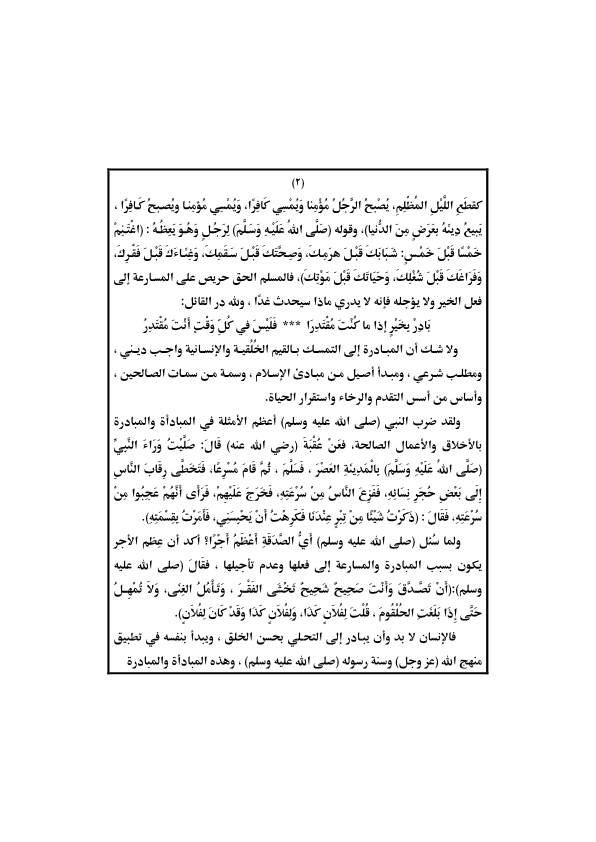 (٢)
كقطَعِ اللَّيْلِ المُظْلِمِ، يُصْبحُ الرَّجُلُ مُؤْمِنا وَيُمْسِي كَافِرًا، وَيُمْسِي مُؤمِنـا ويُصـبحُ كَـافِرًا ،
يَبيعُ دِينَهُ بعَرَضٍ مِنَ الدُّنيا)، وقوله (صَلَّى اللهُ عَلَيْـهِ وَسَلَّمَ) لِرَجُـلٍ وَهُـوَ يَعِظُـهُ : (اغْتَنِمْ
خَمْسًا قَبْلَ خَمْسٍ: شَبَابَكَ قَبْلَ هرَمِـكَ، وَصِحَّتَكَ قَبْـلَ سَقَمِكَ، وَغِنَـاءَكَ قَبْـلَ فَقْـرِكَ،
وَفَرَاغَكَ قَبْلَ شُغْلِكَ، وَحَيَاتَكَ قَبْلَ مَوْتِكَ)، فالمسلم الحق حريص على المسارعة إلى
فعل الخير ولا يؤجله فإنه لا يدري ماذا سيحدث غدًا ، ولله در القائل:
بَادِرْ بخَيْرٍ إذا ما كُنْتَ مُقْتَدِرَا *** فَلَيْسَ في كُلِّ وَقْتٍ أنْتَ مْقْتَدِرُ
ولا شـك أن المبـادرة إلى التمسـك بـالقيم الخُلُقيـة والإنسانية واجـب دينـي ،
ومطلـب شرعـي ، ومبـدأ أصيـل مـن مبـادئ الإسـلام ، وسمـة مـن سمـات الصـالحين ،
وأساس من أسس التقدم والرخاء واستقرار الحياة.
ولقد ضرب النبي (صلى الله عليه وسلم) أعظم الأمثلة في المبادأة والمبادرة
بالأخلاق والأعمال الصالحة، فعَنْ عُقْبَةَ (رضي الله عنه) قَالَ: صَلَّيْتُ وَرَاءَ النَّبِيِّ
(صَلَّى اللهُ عَلَيْهِ وَسَلَّمَ) بالْمَدِينةِ العَصْرَ ، فَسَلَّمَ ، ثُمَّ قَامَ مُسْرِعًا، فَتَخَطَّى رِقَابَ النَّاسِ
إِلَى بَعْضِ حُجَرِ نِسَائِهِ، فَفَزِعَ النَّاسُ مِنْ سُرْعَتِهِ، فَخَرَجَ عَلَيْهِمْ، فَرَأى أَنَّهُمْ عَجِبُوا مِنْ
سُرْعَتِهِ، فَقَالَ : (ذَكَرْتُ شَيْئًا مِنْ تِبْرٍ عِنْدَنَا فَكَرِهْتُ أَنْ يَحْبسَنِي، فَأَمَرْتُ بقِسْمَتِهِ).
ولما سُئل (صلى الله عليه وسلم) أَيُّ الصَّدَقَةِ أَعْظَمُ أَجْرًا؟ أكد أن عِظم الأجر
يكون بسبب المبادرة والمسارعة إلى فعلها وعدم تأجيلها ، فقَالَ (صلى الله عليه
وسلم):(أَنْ تَصَّدَّقَ وَأَنْتَ صَحِيحٌ شَحِيحٌ تَخْشَى الفَقْـرَ ، وَتَـأْمُلُ الغِنَى، وَلاَ تُمْهِـلُ
حَتَّى إِذَا بَلَغَتِ الحُلْقُومَ ، قُلْتَ لِفُلاَنٍ كَذَا، وَلِفُلاَنٍ كَذَا وَقَدْ كَانَ لِفُلاَنٍ).
فالإنسان لا بد وأن يبـادر إلى التحلـي بحسن الخلق ، ويبدأ بنفسه في تطبيق
منهج الله (عز وجل) وسنة رسوله (صلى الله عليه وسلم) ، وهذه المبادأة والمبادرة